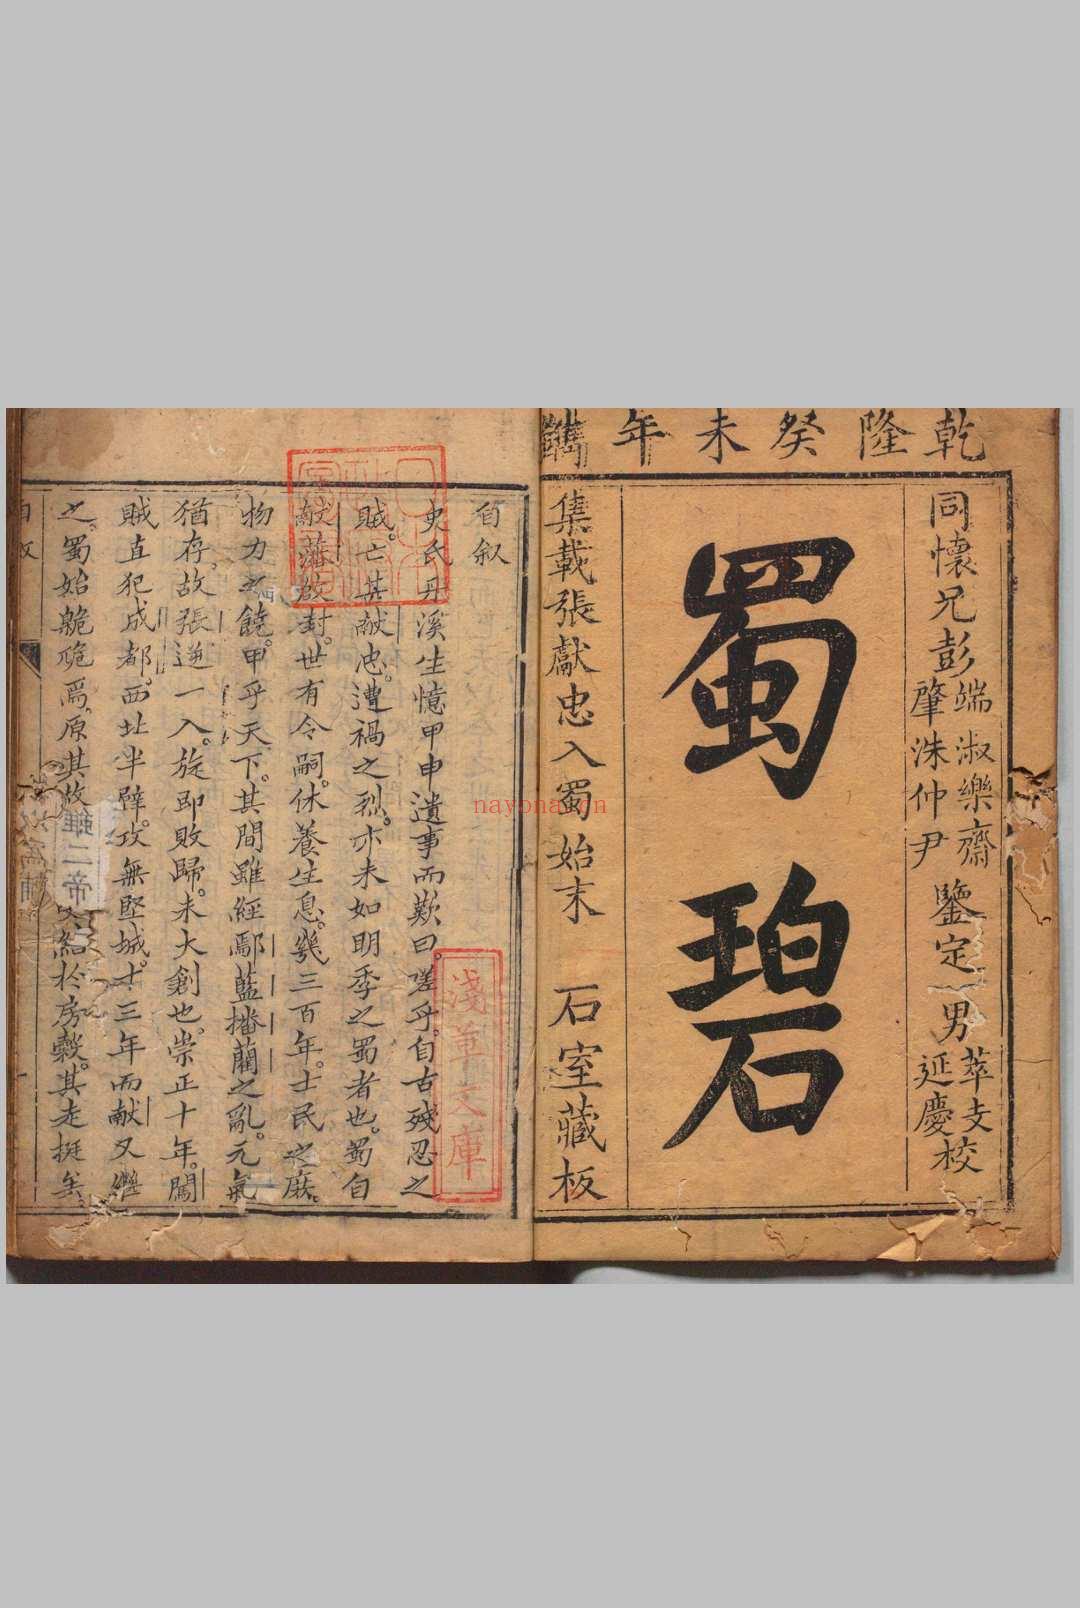 乾隆癸未年鐫
同懷兄彭端淑樂齋
肇洙仲尹
鑒定
男
萃支
延慶
校
蜀碧
集載張獻忠入蜀始末　石室藏板
自叙
史氏丹溪生憶甲申遺事而歎曰。嗟乎。自古殘忍之
賊。亡甚献忠。遭禍之烈。亦未如明季之蜀者也。蜀自
献藩啟封。世有令嗣。休養生息。幾三百年。士民之庶。
物力之饒。甲乎天下。其間雖經鄢藍播藺之亂。元氣
猶存。故張逆一入。旋即敗歸。未大創也。崇正十年。闖
賊直犯成都。西北半壁。攻無堅城。十三年而献又繼
之。蜀始臲卼焉。原其故雖二帝 紿於房縠。其走挺矣。
淺草文庫
nayona.cn